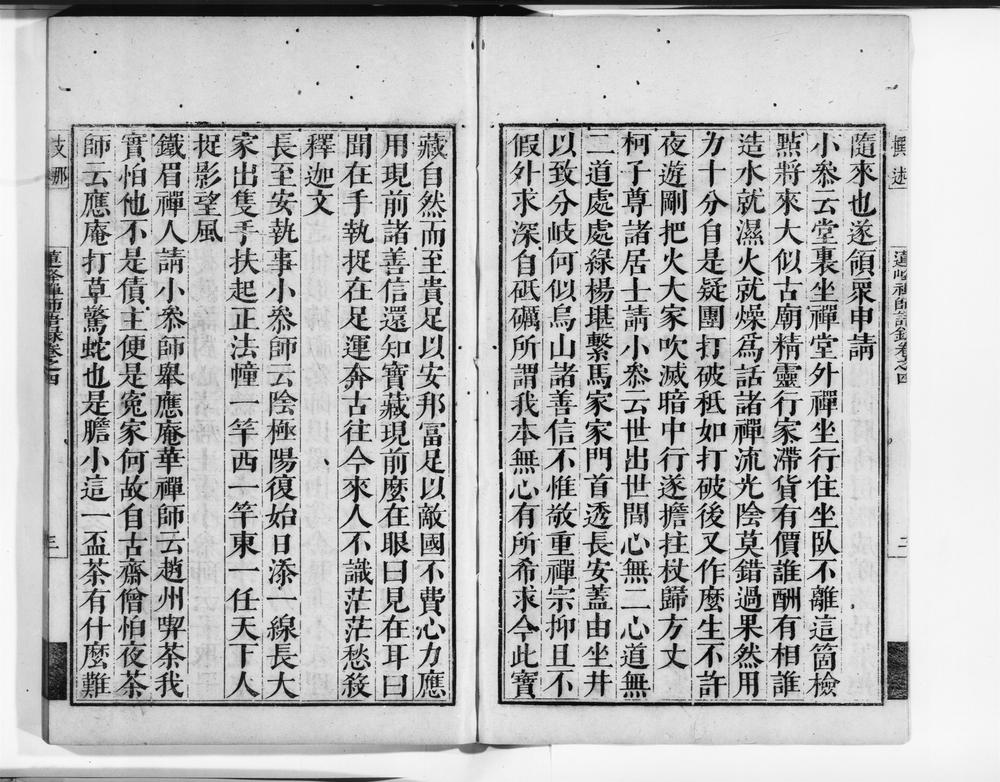 隨來也遂領眾申請
小叅云堂裏坐禪堂外禪坐行住坐臥不離這箇檢
點將來大似古廟精靈行家滯貨有價誰酬有相誰
造水就濕火就燥為話諸禪流光陰莫錯過果然用
力十分自是疑團打破秪如打破後又作麼生不許
夜遊剛把火大家吹滅暗中行遂擔拄杖歸方丈
柯子尊諸居士請小叅云世出世間心無二心道無
二道處處綠楊堪繫馬家家門首透長安蓋由坐井
以致分岐何似烏山諸善信不惟敬重禪宗抑且不
假外求深自砥礪所謂我本無心有所希求今此寶
藏自然而至貴足以安邦富足以敵國不費心力應
用現前諸善信還知寶藏現前麼在眼曰見在耳曰
聞在手執捉在足運奔古往今來人不識茫茫愁殺
釋迦文
長至安執事小叅師云陰極陽復始日添一線長大
家出隻手扶起正法幢一竿西一竿東一任天下人
捉影望風
鐵眉禪人請小叅師舉應庵華禪師云趙州喫茶我
實怕他不是債主便是冤家何故自古齋僧怕夜茶
師云應庵打草驚蛇也是膽小這一盃茶有什麼難
支那
禪師語錄卷之四
三